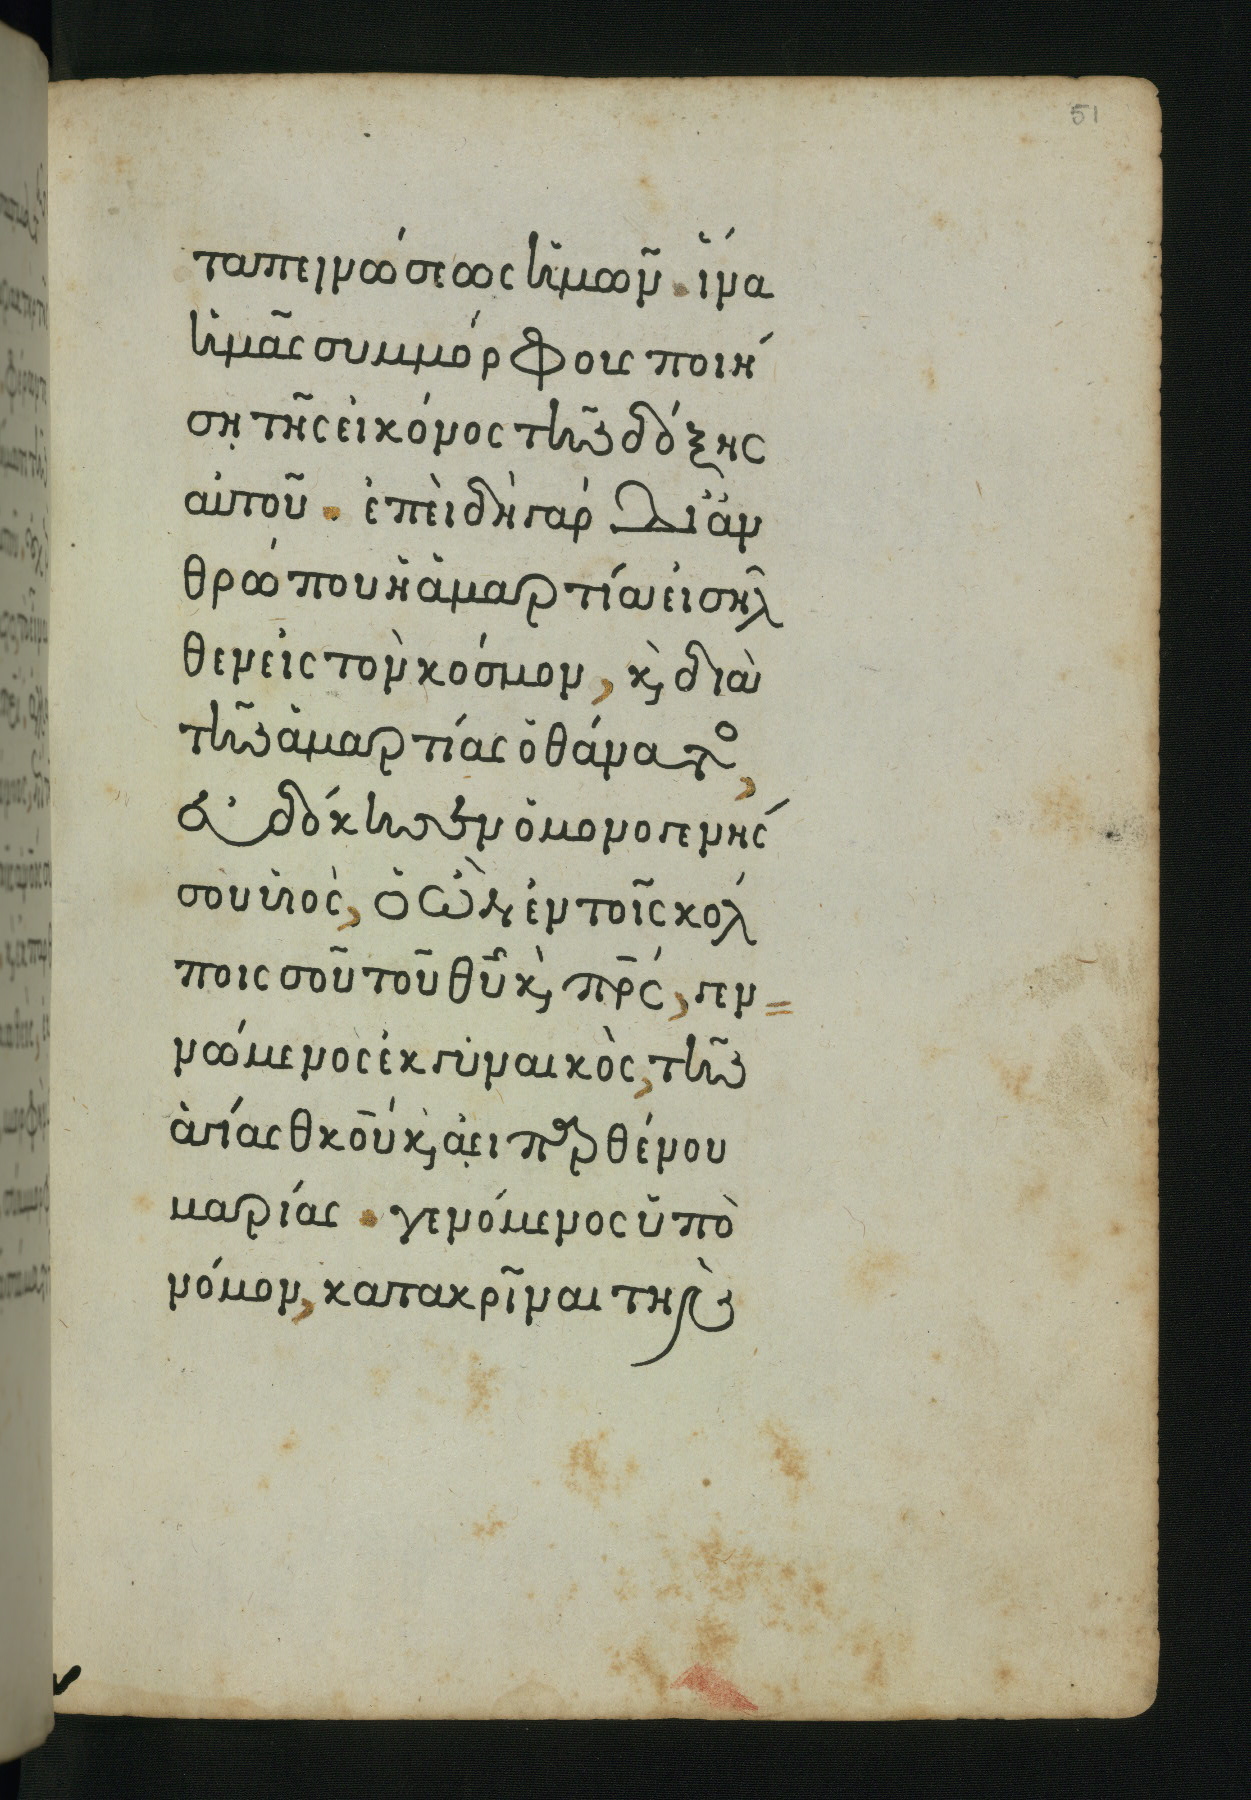 51
ταπεινώσεως ἡμῶν . ἵνα
ἡμᾶς συμμόρφους ποιή
σῃ τῆς εἰκόνος τῆς δόξης
αὐτοῦ . ἐπειδὴ γὰρ δι ἀν
θρώπου ἡ ἁμαρτία εἰσῆλ
θεν εἰς τὸν κόσμον, κ̀, διὰ
τῆς ἁμαρτίας ὁ θάνατο,
εὐδόκησεν ὁ μονογενής
σου υἱὸς, ὁ ὢν ἐν τοῖς κόλ
ποις σοῦ τοῦ θῦ κ̀, πρ̅ς, γεν=
νώμενος ἐκ γυναικὸς, τῆς
ἁγίας θκου κ̀, ἀει πρθένου
μαρίας . γενόμενος ὑπὸ
νόμον, κατακρῖναι τὴν